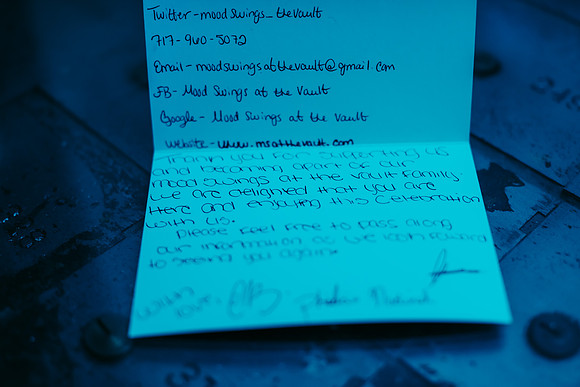 Twitter - moodswings_thevault
717-960-5072
Email - moodswingsatthevault@gmail.com
FB - Mood Swings at the Vault
Google - Mood Swings at the Vault
Website - www.msatthevault.com
Thank you for supporting us
and becoming apart of our
mood swings at the vault family.
We are delighted that you are
Here and enjoying this celebration
with us.
Please feel free to pass along
our information as we look forward
to seeing you again
With love,